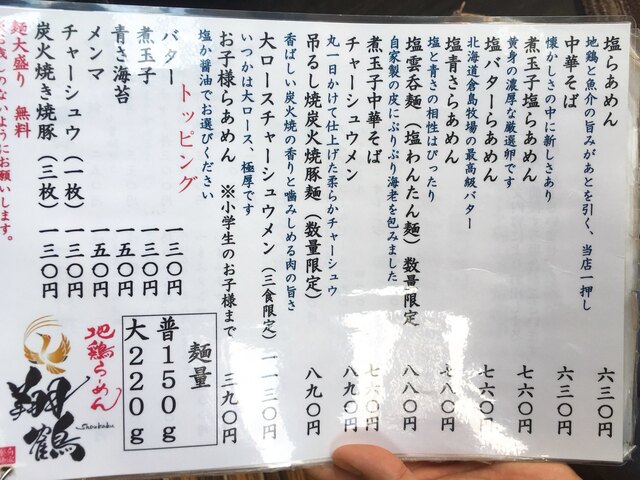 塩らあめん 六三〇円
地鶏と魚介の旨みがあとを引く、当店一押し
中華そば 六三〇円
懐かしさの中に新しさあり
煮玉子塩らあめん 七六〇円
黄身の濃厚な厳選卵です
塩バターらあめん 七六〇円
北海道倉島牧場の最高級バター
塩青さらあめん 七八〇円
塩と青さの相性はぴったり
塩雲呑麺（塩わんたん麺）数量限定 八八〇円
自家製の皮にぷりぷり海老を包みました
煮玉子中華そば 七六〇円
チャーシュウメン 八九〇円
丸一日かけて仕上げた柔らかチャーシュウ
吊るし焼炭火焼豚麺（数量限定） 八九〇円
香ばしい炭火焼の香りと噛みしめる肉の旨さ
大ロースチャーシュウメン（三食限定） 一一三〇円
いつかは大ロース、極厚です
お子様らあめん ※小学生のお子様まで 三九〇円
塩か醤油でお選びください
トッピング
バター 一三〇円
煮玉子 一三〇円
青さ海苔 一五〇円
メンマ 一五〇円
チャーシュウ（一枚） 一三〇円
炭火焼き焼豚（三枚） 一三〇円
麺大盛り 無料
のないようにお願いします。
麺量
普150g
大220g
地鶏らーめん
翔鶴
Shoukaku